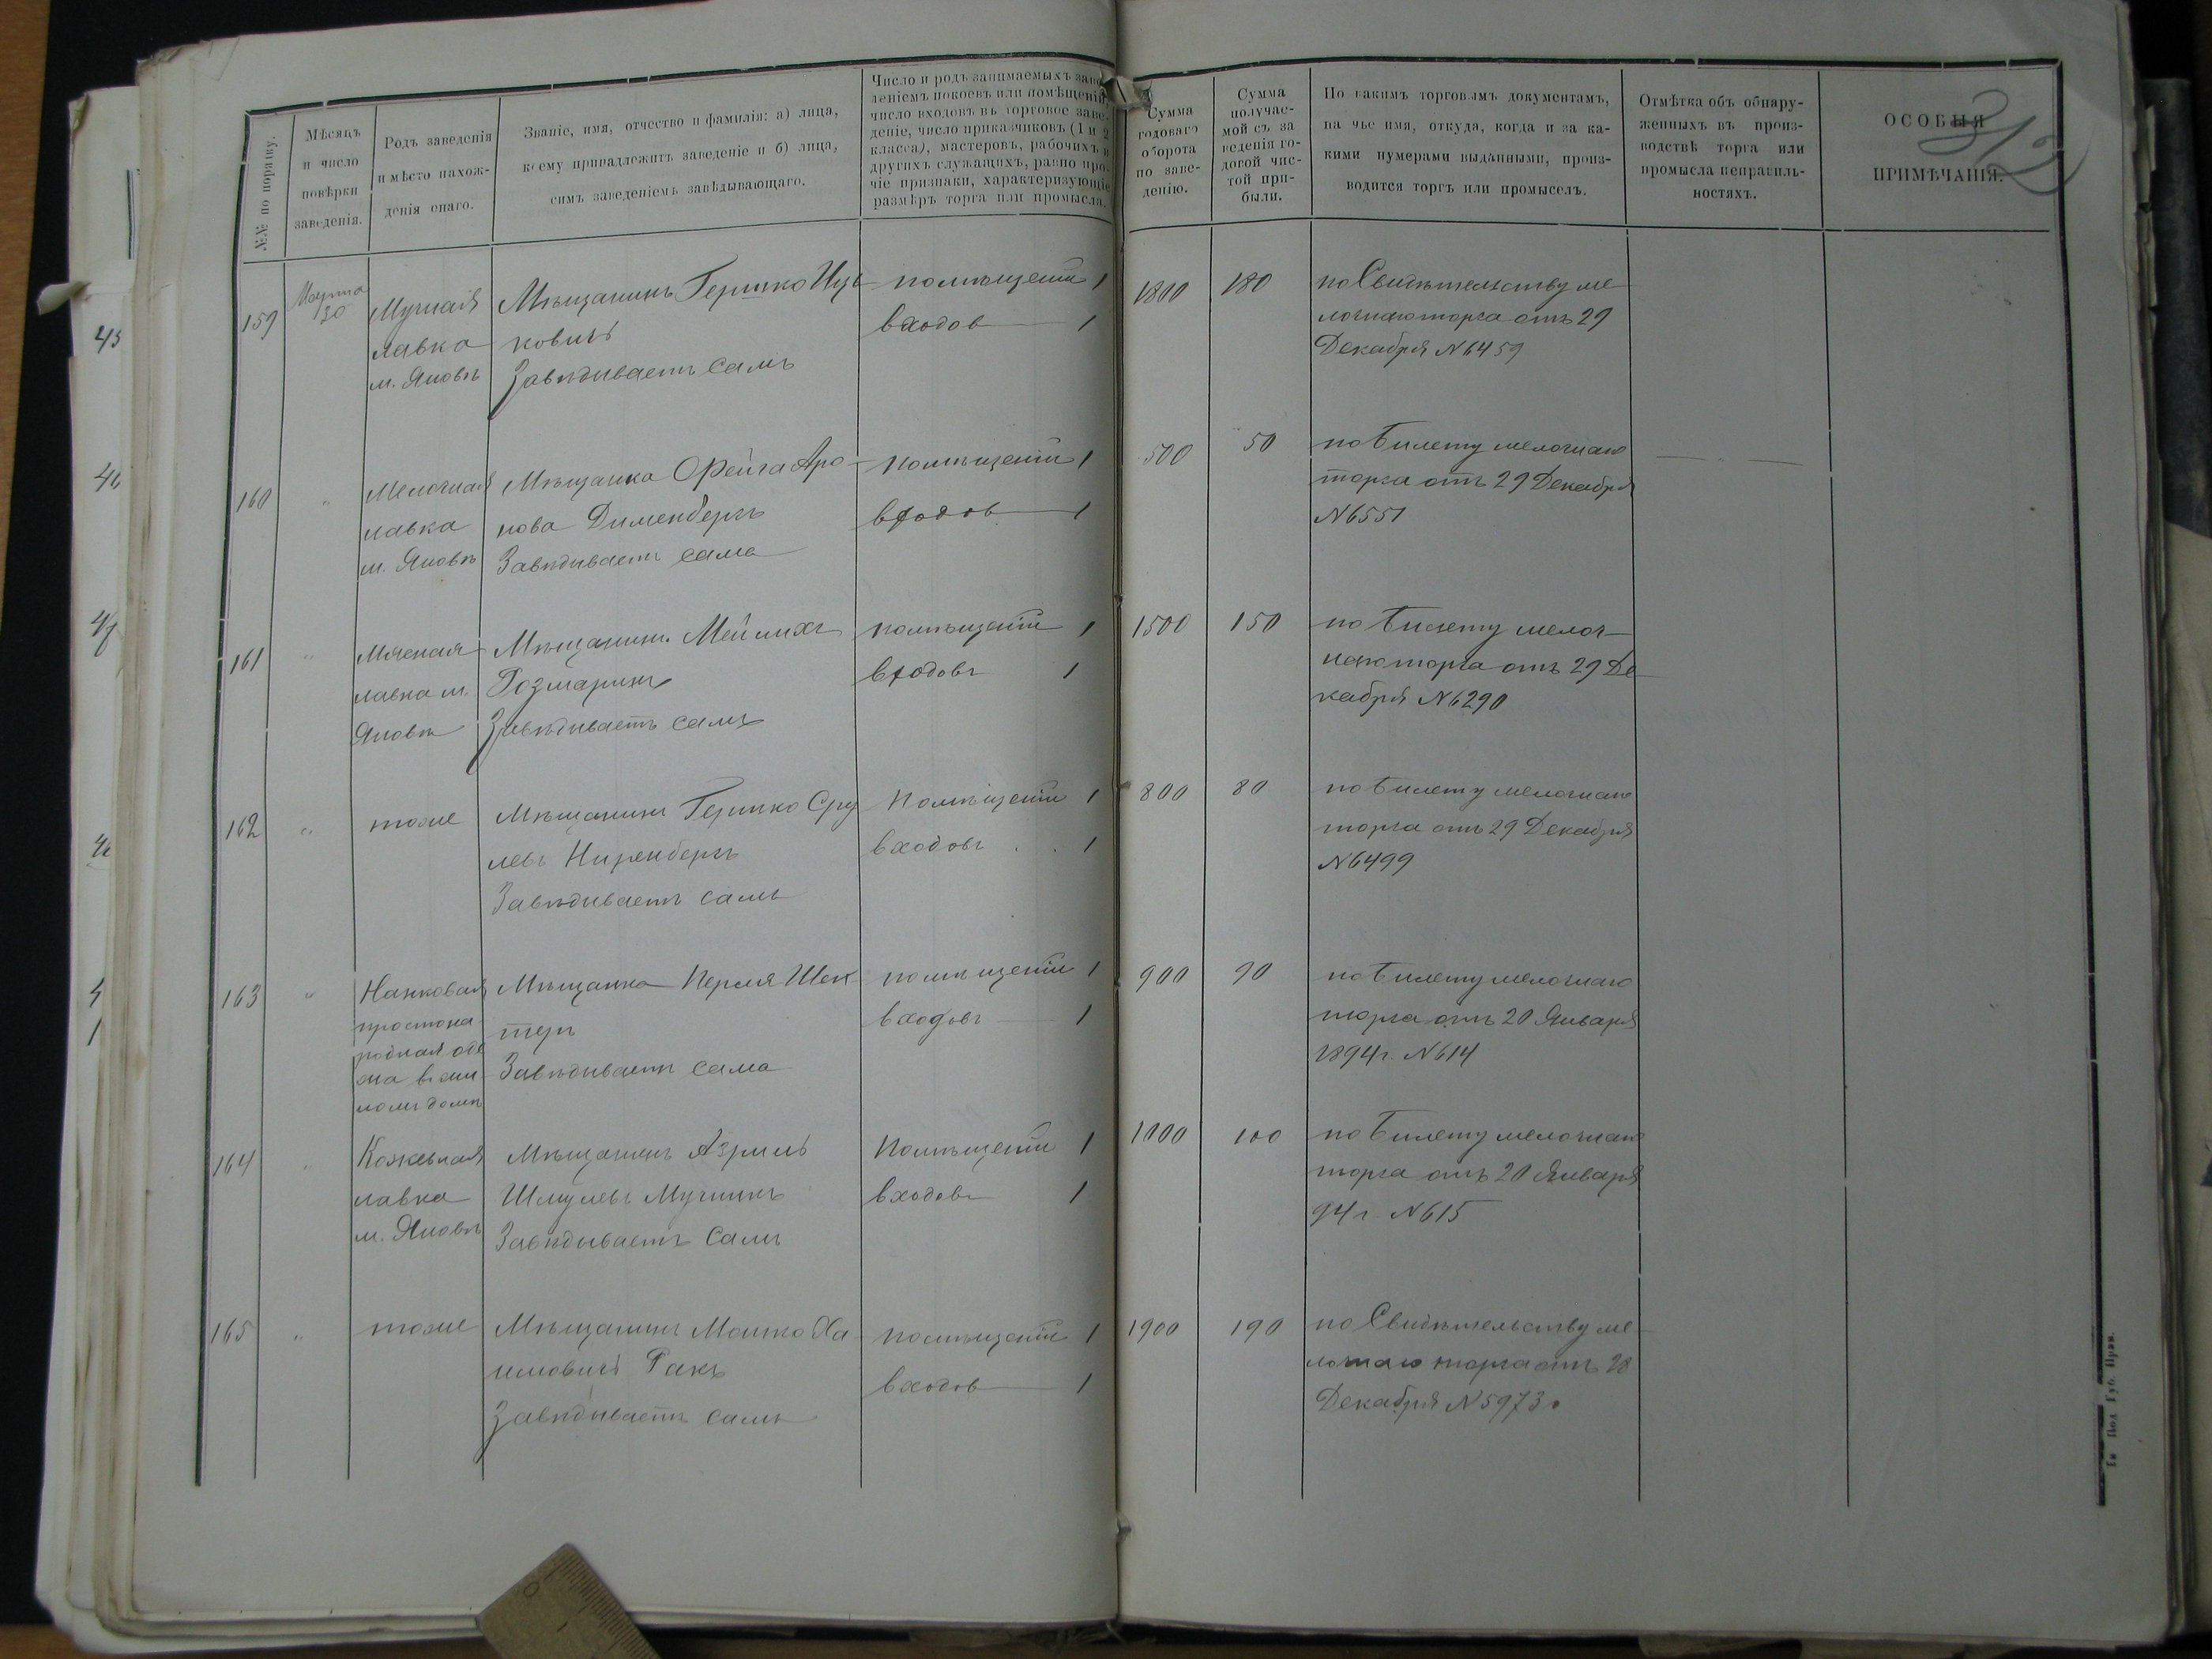 312
№№ по порядку.
Мѣсяцъ
и число
повѣрки
заведенія.
Родъ заведенія
и мѣсто нахож-
денія онаго.
Званіе, имя, отчество и фамилія: а) лица,
коему принадлежитъ заведеніе и б) лица,
симъ заведеніемъ завѣдывающаго.
Число и родъ занимаемыхъ заве-
деніемъ покоевъ или помѣщеній,
число входовъ въ торговое заве-
деніе, число приказчиковъ (1 и 2
класса), мастеровъ, рабочихъ и
другихъ служащихъ, равно про-
чіе признаки, характеризующіе
размѣръ торга или промысла.
Сумма
годоваго
оборота
по заве-
денію.
Сумма
получае-
мой съ за
веденія го-
довой чис-
той при-
были.
По какимъ торговымъ документамъ,
на чье имя, откуда, когда и за ка-
кими нумерами выданными, произ-
водится торгъ или промыселъ.
Отмѣтка объ обнару-
женныхъ въ произ-
водствѣ торга или
промысла неправиль-
ностяхъ.
ОСОБЫЯ
ПРИМѢЧАНІЯ.
159
Марта
30
Мучная
лавка
м. Яновѣ
Мѣщанинъ Гершко Иць
ковичъ
Завѣдываетъ самъ
помѣщеній 1
входов 1
1800
180
по Свидѣтельству ме
лочнаго торга отъ 29
Декабря N 6459
160
"
Мелочная
лавка
м. Яновѣ
Мѣщанка Фейга Аро
нова Дименбергъ
Завѣдываетъ сама
помѣщеній 1
входов 1
500
50
по билету мелочнаго
торга отъ 29 Декабря
N 6551
161
"
Мясная
лавка м.
Яновѣ
Мѣщанинъ Мейлихъ
Розмаринъ
Завѣдываетъ самъ
помѣщеній 1
входовъ 1
1500
150
по билету мелоч
наго торга отъ 29 Де
кабря N 6290
162
"
тоже
Мѣщанинъ Гершко Сру
левъ Ниренбергъ
Завѣдываетъ самъ
Помѣщеній 1
входовъ . . 1
800
80
по билету мелочнаго
торга отъ 29 Декабря
N 6499
163
"
Нанковая
простона
родная оде
жа въ жи
ломъ домѣ
Мѣщанка Перля Шех
теръ
Завѣдываетъ сама
помѣщеній 1
входовъ 1
900
90
по билету мелочнаго
торга отъ 20 Января
1894 г. N 614
164
"
Кожевная
лавка
м. Яновѣ
Мѣщанинъ Азриль
Шмулевъ Мучникъ
Завѣдываетъ Самъ
Помѣщеній 1
входовъ 1
1000
100
по билету мелочнаго
торга отъ 20 Января
94 г. N 615
165
"
тоже
Мѣщанинъ Мошко Ха
имовичъ Ракъ
Завѣдываетъ самъ
помѣщеній 1
входов 1
1900
190
по Свидѣтельству ме
лочнаго торга отъ 28
Декабря N 5973.